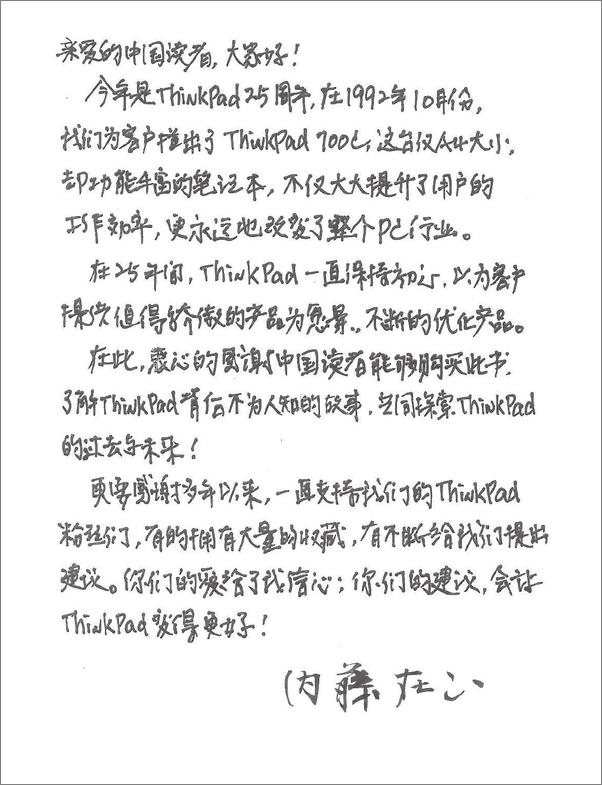 亲爱的中国读者，大家好！
今年是ThinkPad 25周年，在1992年10月份，
我们为客户推出了 ThinkPad 700C，这台仅A4大小，
却功能丰富的笔记本，不仅大大提升了用户的
工作效率，更永远地改变了整个PC行业。
在25年间，ThinkPad 一直保持初心，以为客户
提供值得骄傲的产品为愿景，不断的优化产品。
在此，衷心的感谢中国读者能够购买此书，
了解ThinkPad 背后不为人知的故事，共同探索ThinkPad
的过去与未来！
更要感谢多年以来，一直支持我们的ThinkPad
粉丝们，有的拥有大量的收藏，有不断给我们提出
建议。你们的爱给了我信心；你们的建议，会让
ThinkPad 变得更好！
内藤在心